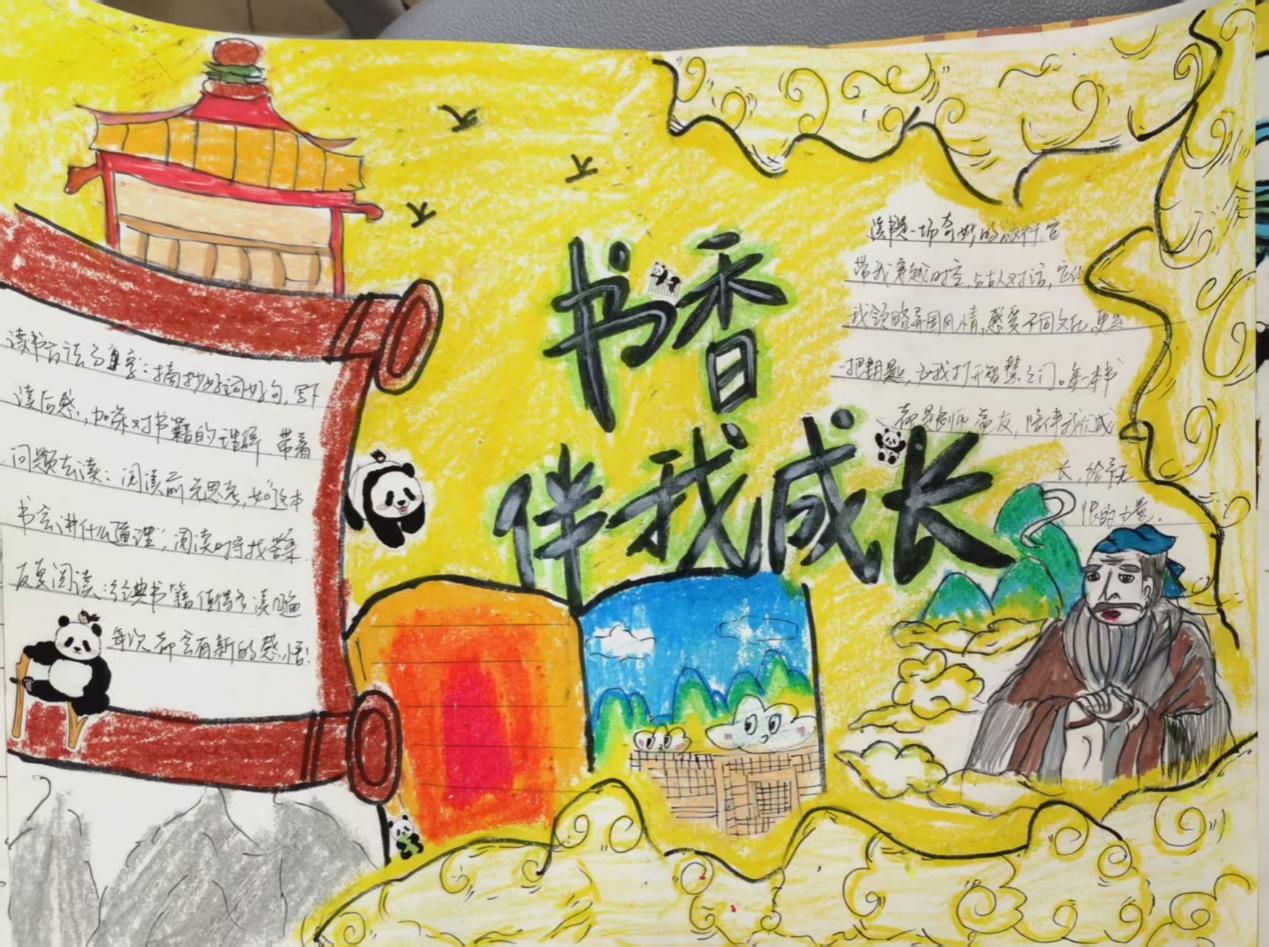 书香
伴我成长
读书方法分享：摘抄好词好句，写下
读后感，加深对书籍的理解 带着
问题去读：阅读前先思考，如"这本
书会讲什么道理"，阅读时寻找答案
反复阅读：经典书籍值得多读几遍
每次都会有新的感悟！
读书是一场奇妙的旅行，它
带我穿越时空，与古人对话，它让
我领略异国风情，感受不同文化，更是
一把钥匙，为我打开智慧之门。每一本书
都是良师益友，陪伴我们成
长，给予无
限的力量。